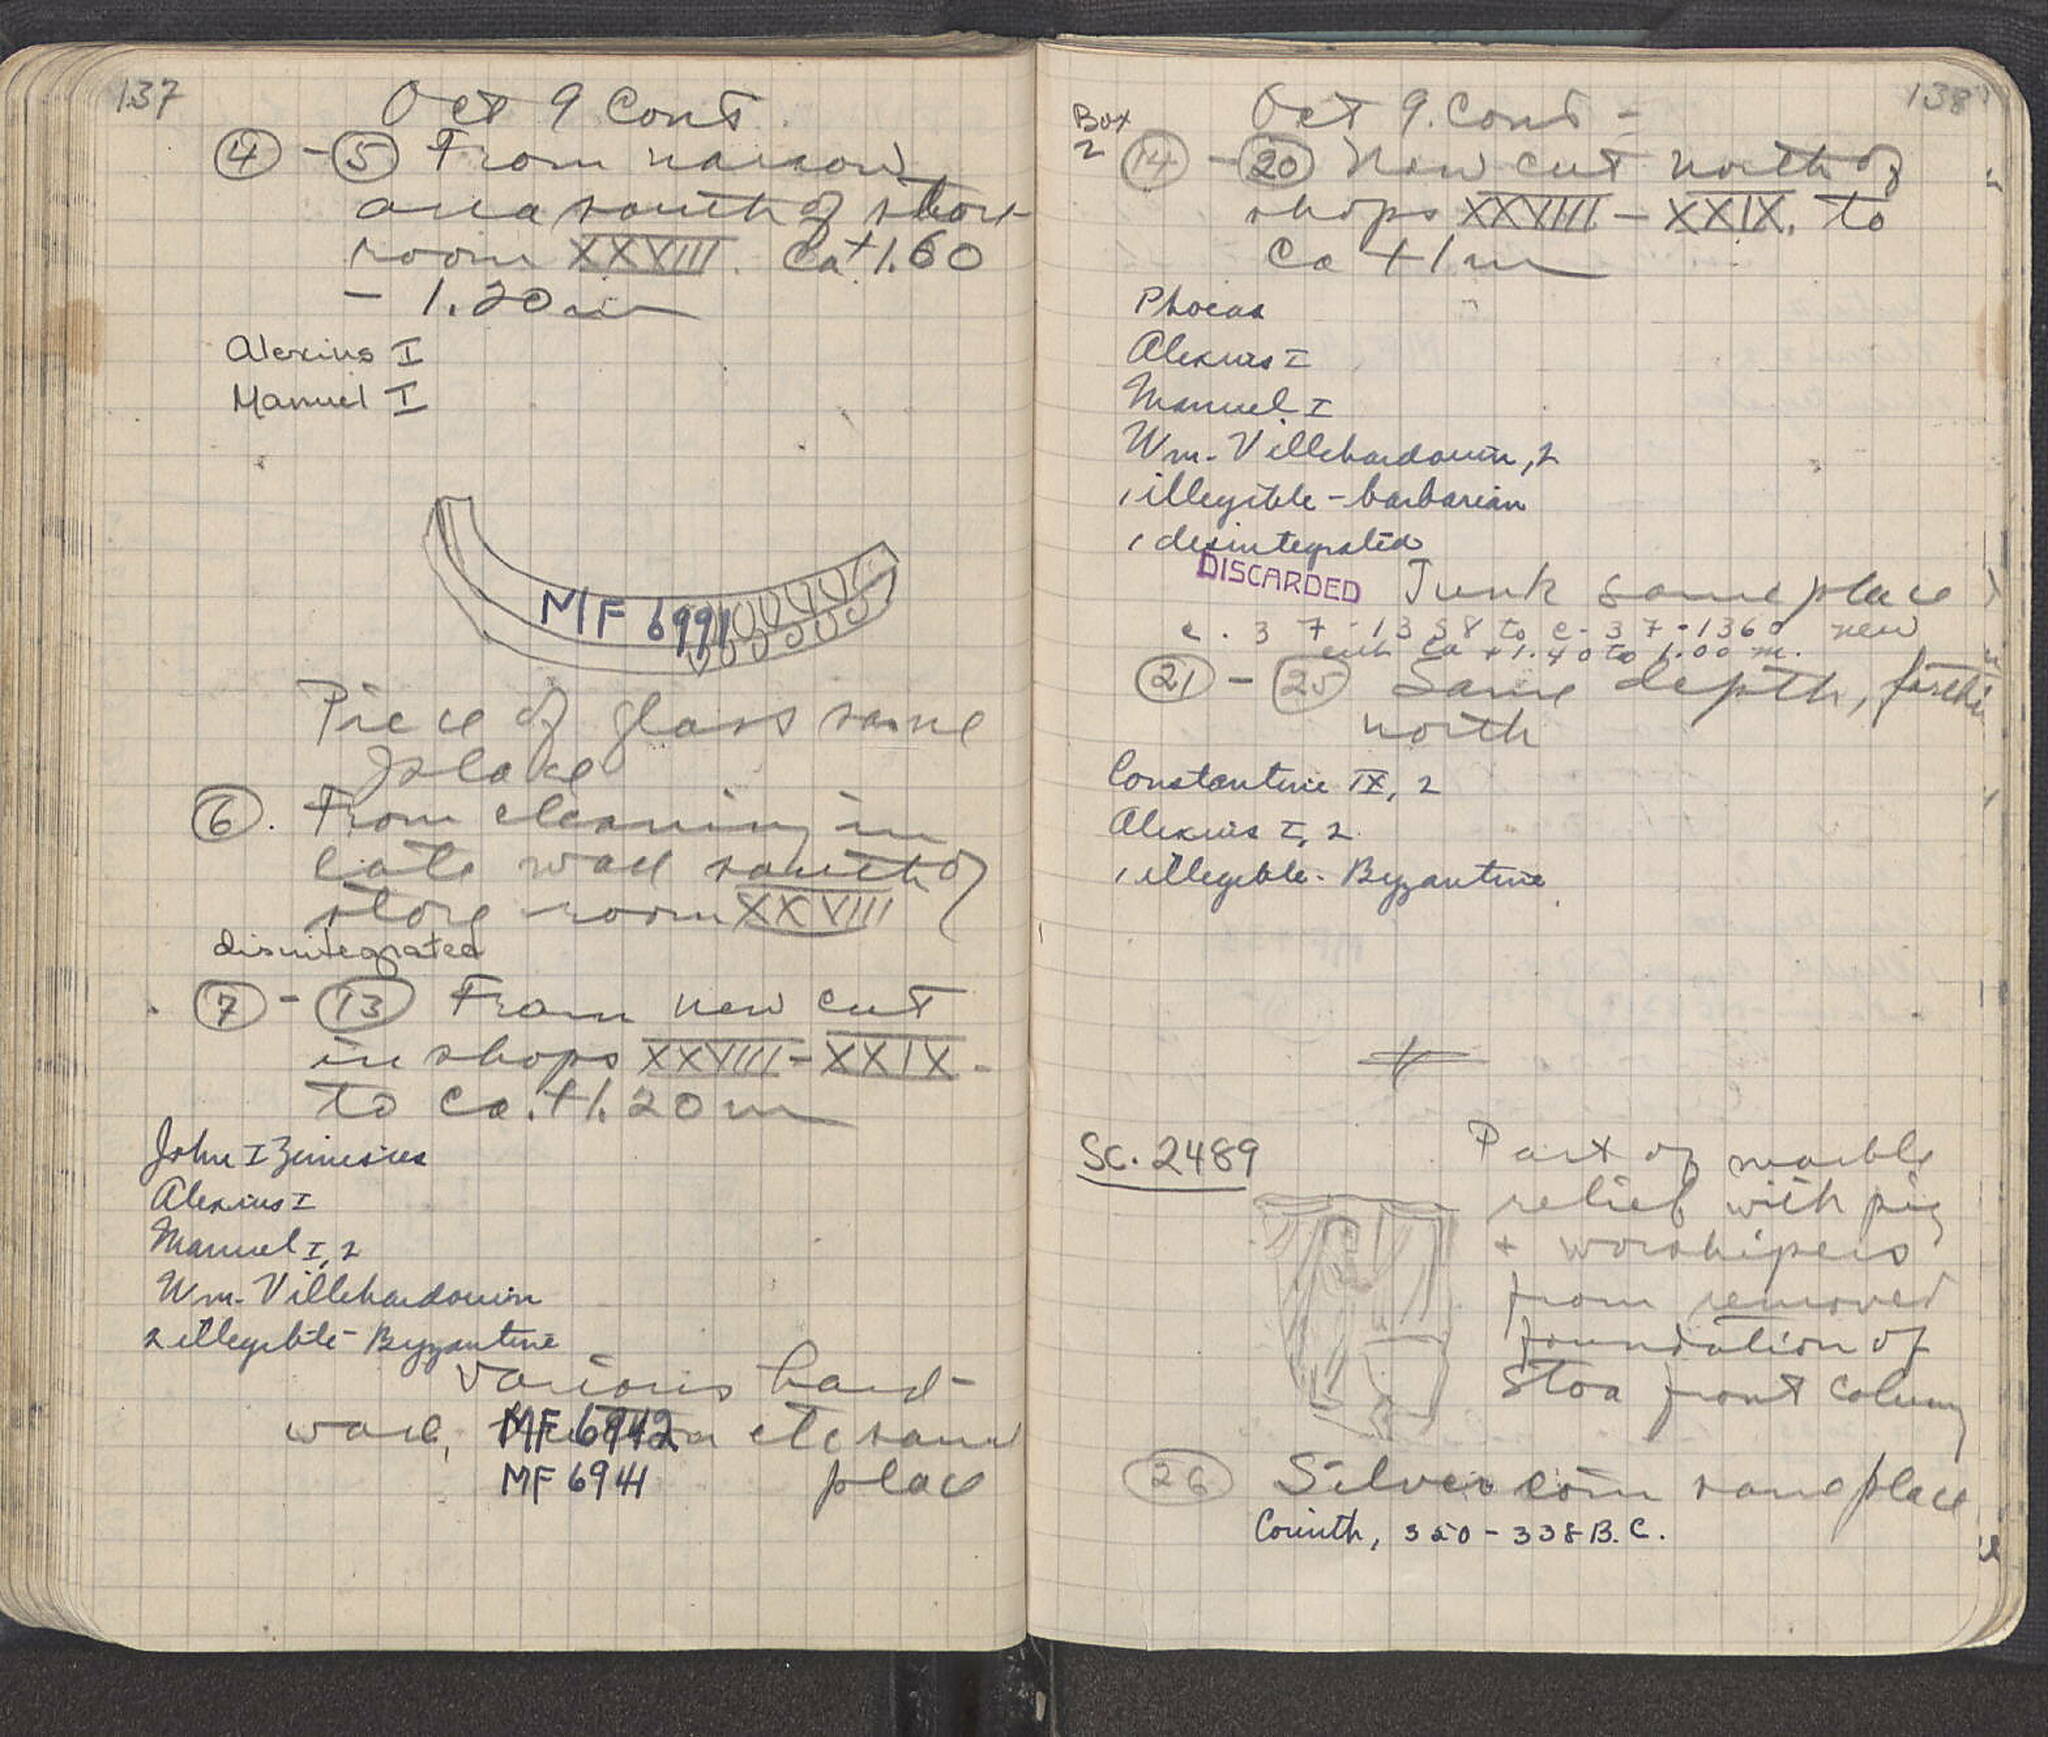 137
Oct 9 Cont.
④ - ⑤ From narrow
area south of store
room XXVIII. Ca +1.60
- 1.20 m
Alexius I
Manuel I
MF 6991
Piece of glass same
place
⑥. From cleaning in
late wall south of
store room XXVIII
disintegrated
⑦ - ⑬ From new cut
in shops XXVIII - XXIX -
to ca. +1.20 m
John I Zimisces
Alexius I
Manuel I, 2
Wm. Villehardouin
2 illegible - Byzantine
Various hard-
ware, MF 6942 etc same
MF 6941 place
138
Oct 9. Cont -
Box
2
⑭ - ⑳ New cut north of
shops XXVIII - XXIX. to
Ca +1 m
Phocas
Alexius I
Manuel I
Wm. Villehardouin, 2
1 illegible - barbarian
1 disintegrated
DISCARDED Junk same place
c. 37-1358 to c-37-1360 new
cut Ca +1.40 to 1.00 m.
㉑ - ㉕ Same depth,
north
Constantine IX, 2
Alexius I, 2
1 illegible - Byzantine
SC. 2489
Part of marble
relief with pig
+ worshipers
from removed
foundation of
Stoa front column
㉖ Silver coin same place
Corinth, 350 - 338 B.C.